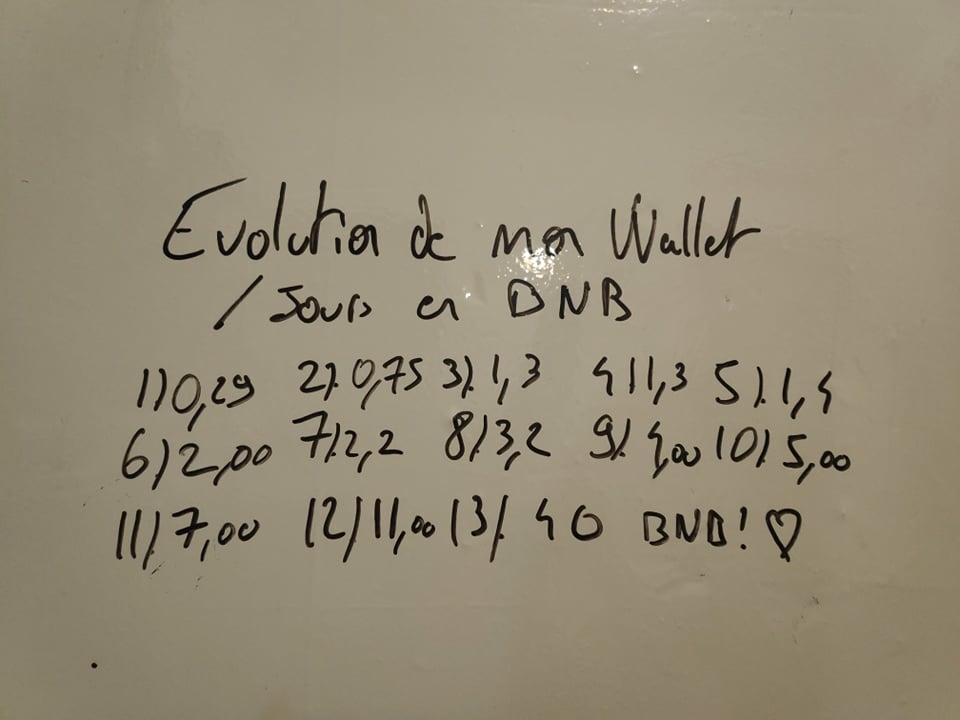 Evolution de mon Wallet
/Jours en BNB
1) 0,29 2). 0,75 3). 1,3 4) 1,3 5). 1,4
6) 2,00 7). 2,2 8) 3,2 9). 4,00 10). 5,00
11). 7,00 12) 11,00 13). 40 BNB! ♡